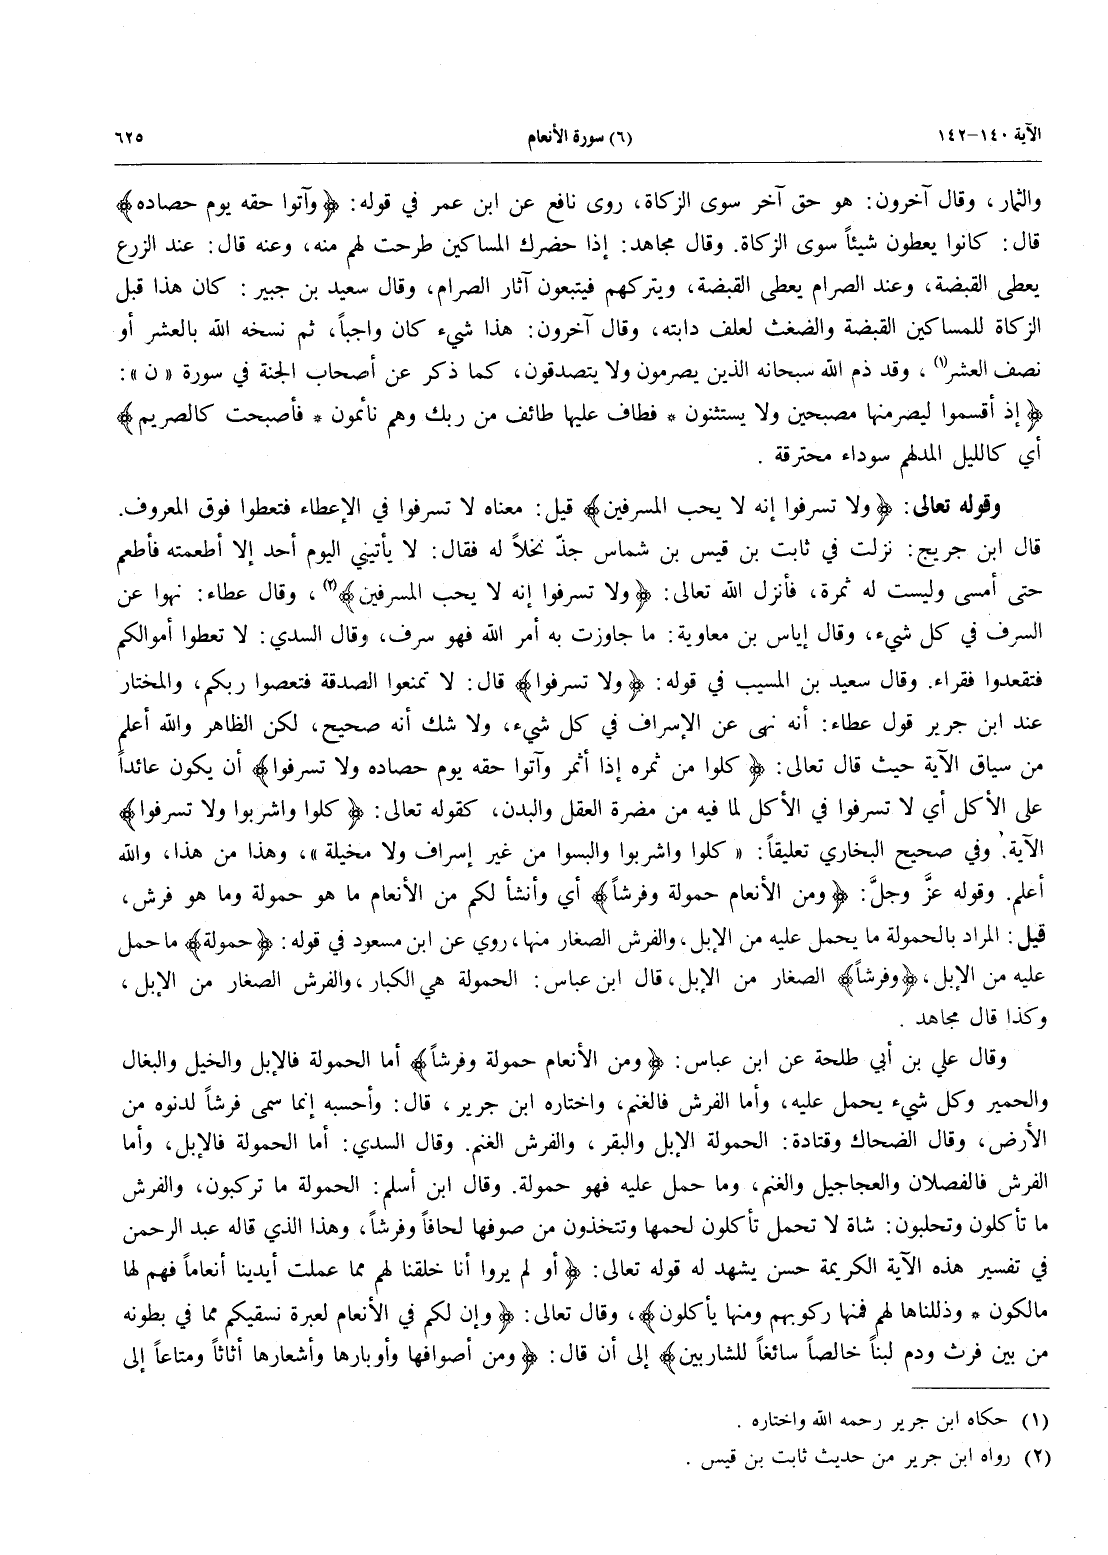 الآية ١٤٠-١٤٢
(٦) سورة الأنعام
٦٢٥
والثمار، وقال آخرون: هو حق آخر سوى الزكاة، روى نافع عن ابن عمر في قوله: ﴿وآتوا حقه يوم حصاده﴾
قال: كانوا يعطون شيئاً سوى الزكاة. وقال مجاهد: إذا حضرك المساكين طرحت لهم منه، وعنه قال: عند الزرع
يعطى القبضة، وعند الصرام يعطى القبضة، ويتركهم فيتبعون آثار الصرام، وقال سعيد بن جبير: كان هذا قبل
الزكاة للمساكين القبضة والضغث لعلف دابته، وقال آخرون: هذا شيء كان واجباً، ثم نسخه الله بالعشر أو
نصف العشر(١)، وقد ذم الله سبحانه الذين يصرمون ولا يتصدقون، كما ذكر عن أصحاب الجنة في سورة «ن»:
﴿إذ أقسموا ليصرمنها مصبحين ولا يستثنون * فطاف عليها طائف من ربك وهم نائمون * فأصبحت كالصريم﴾
أي كالليل المدلهم سوداء محترقة.
وقوله تعالى: ﴿ولا تسرفوا إنه لا يحب المسرفين﴾ قيل: معناه لا تسرفوا في الإعطاء فتعطوا فوق المعروف.
قال ابن جريج: نزلت في ثابت بن قيس بن شماس جذّ نخلاً له فقال: لا يأتيني اليوم أحد إلا أطعمته فأطعم
حتى أمسى وليست له ثمرة، فأنزل الله تعالى: ﴿ولا تسرفوا إنه لا يحب المسرفين﴾(٢)، وقال عطاء: نهوا عن
السرف في كل شيء، وقال إياس بن معاوية: ما جاوزت به أمر الله فهو سرف، وقال السدي: لا تعطوا أموالكم
فتقعدوا فقراء. وقال سعيد بن المسيب في قوله: ﴿ولا تسرفوا﴾ قال: لا تمنعوا الصدقة فتعصوا ربكم، والمختار
عند ابن جرير قول عطاء: أنه نهى عن الإسراف في كل شيء، ولا شك أنه صحيح، لكن الظاهر والله أعلم
من سياق الآية حيث قال تعالى: ﴿كلوا من ثمره إذا أثمر وآتوا حقه يوم حصاده ولا تسرفوا﴾ أن يكون عائداً
على الأكل أي لا تسرفوا في الأكل لما فيه من مضرة العقل والبدن، كقوله تعالى: ﴿كلوا واشربوا ولا تسرفوا﴾
الآية. وفي صحيح البخاري تعليقاً: «كلوا واشربوا والبسوا من غير إسراف ولا مخيلة»، وهذا من هذا، والله
أعلم. وقوله عزَّ وجلَّ: ﴿ومن الأنعام حمولة وفرشاً﴾ أي وأنشأ لكم من الأنعام ما هو حمولة وما هو فرش،
قيل: المراد بالحمولة ما يحمل عليه من الإبل، والفرش الصغار منها، روي عن ابن مسعود في قوله: ﴿حمولة﴾ ما حمل
عليه من الإبل، ﴿وفرشاً﴾ الصغار من الإبل، قال ابن عباس: الحمولة هي الكبار، والفرش الصغار من الإبل،
وكذا قال مجاهد.
وقال علي بن أبي طلحة عن ابن عباس: ﴿ومن الأنعام حمولة وفرشاً﴾ أما الحمولة فالإبل والخيل والبغال
والحمير وكل شيء يحمل عليه، وأما الفرش فالغنم، واختاره ابن جرير، قال: وأحسبه إنما سمى فرشاً لدنوه من
الأرض، وقال الضحاك وقتادة: الحمولة الإبل والبقر، والفرش الغنم. وقال السدي: أما الحمولة فالإبل، وأما
الفرش فالفصلان والعجاجيل والغنم، وما حمل عليه فهو حمولة. وقال ابن أسلم: الحمولة ما تركبون، والفرش
ما تأكلون وتحلبون: شاة لا تحمل تأكلون لحمها وتتخذون من صوفها لحافاً وفرشاً، وهذا الذي قاله عبد الرحمن
في تفسير هذه الآية الكريمة حسن يشهد له قوله تعالى: ﴿أو لم يروا أنا خلقنا لهم مما عملت أيدينا أنعاماً فهم لها
مالكون * وذللناها لهم فمنها ركوبهم ومنها يأكلون﴾، وقال تعالى: ﴿وإن لكم في الأنعام لعبرة نسقيكم مما في بطونه
من بين فرث ودم لبناً خالصاً سائغاً للشاربين﴾ إلى أن قال: ﴿ومن أصوافها وأوبارها وأشعارها أثاثاً ومتاعاً إلى
(١) حكاه ابن جرير رحمه الله واختاره.
(٢) رواه ابن جرير من حديث ثابت بن قيس.